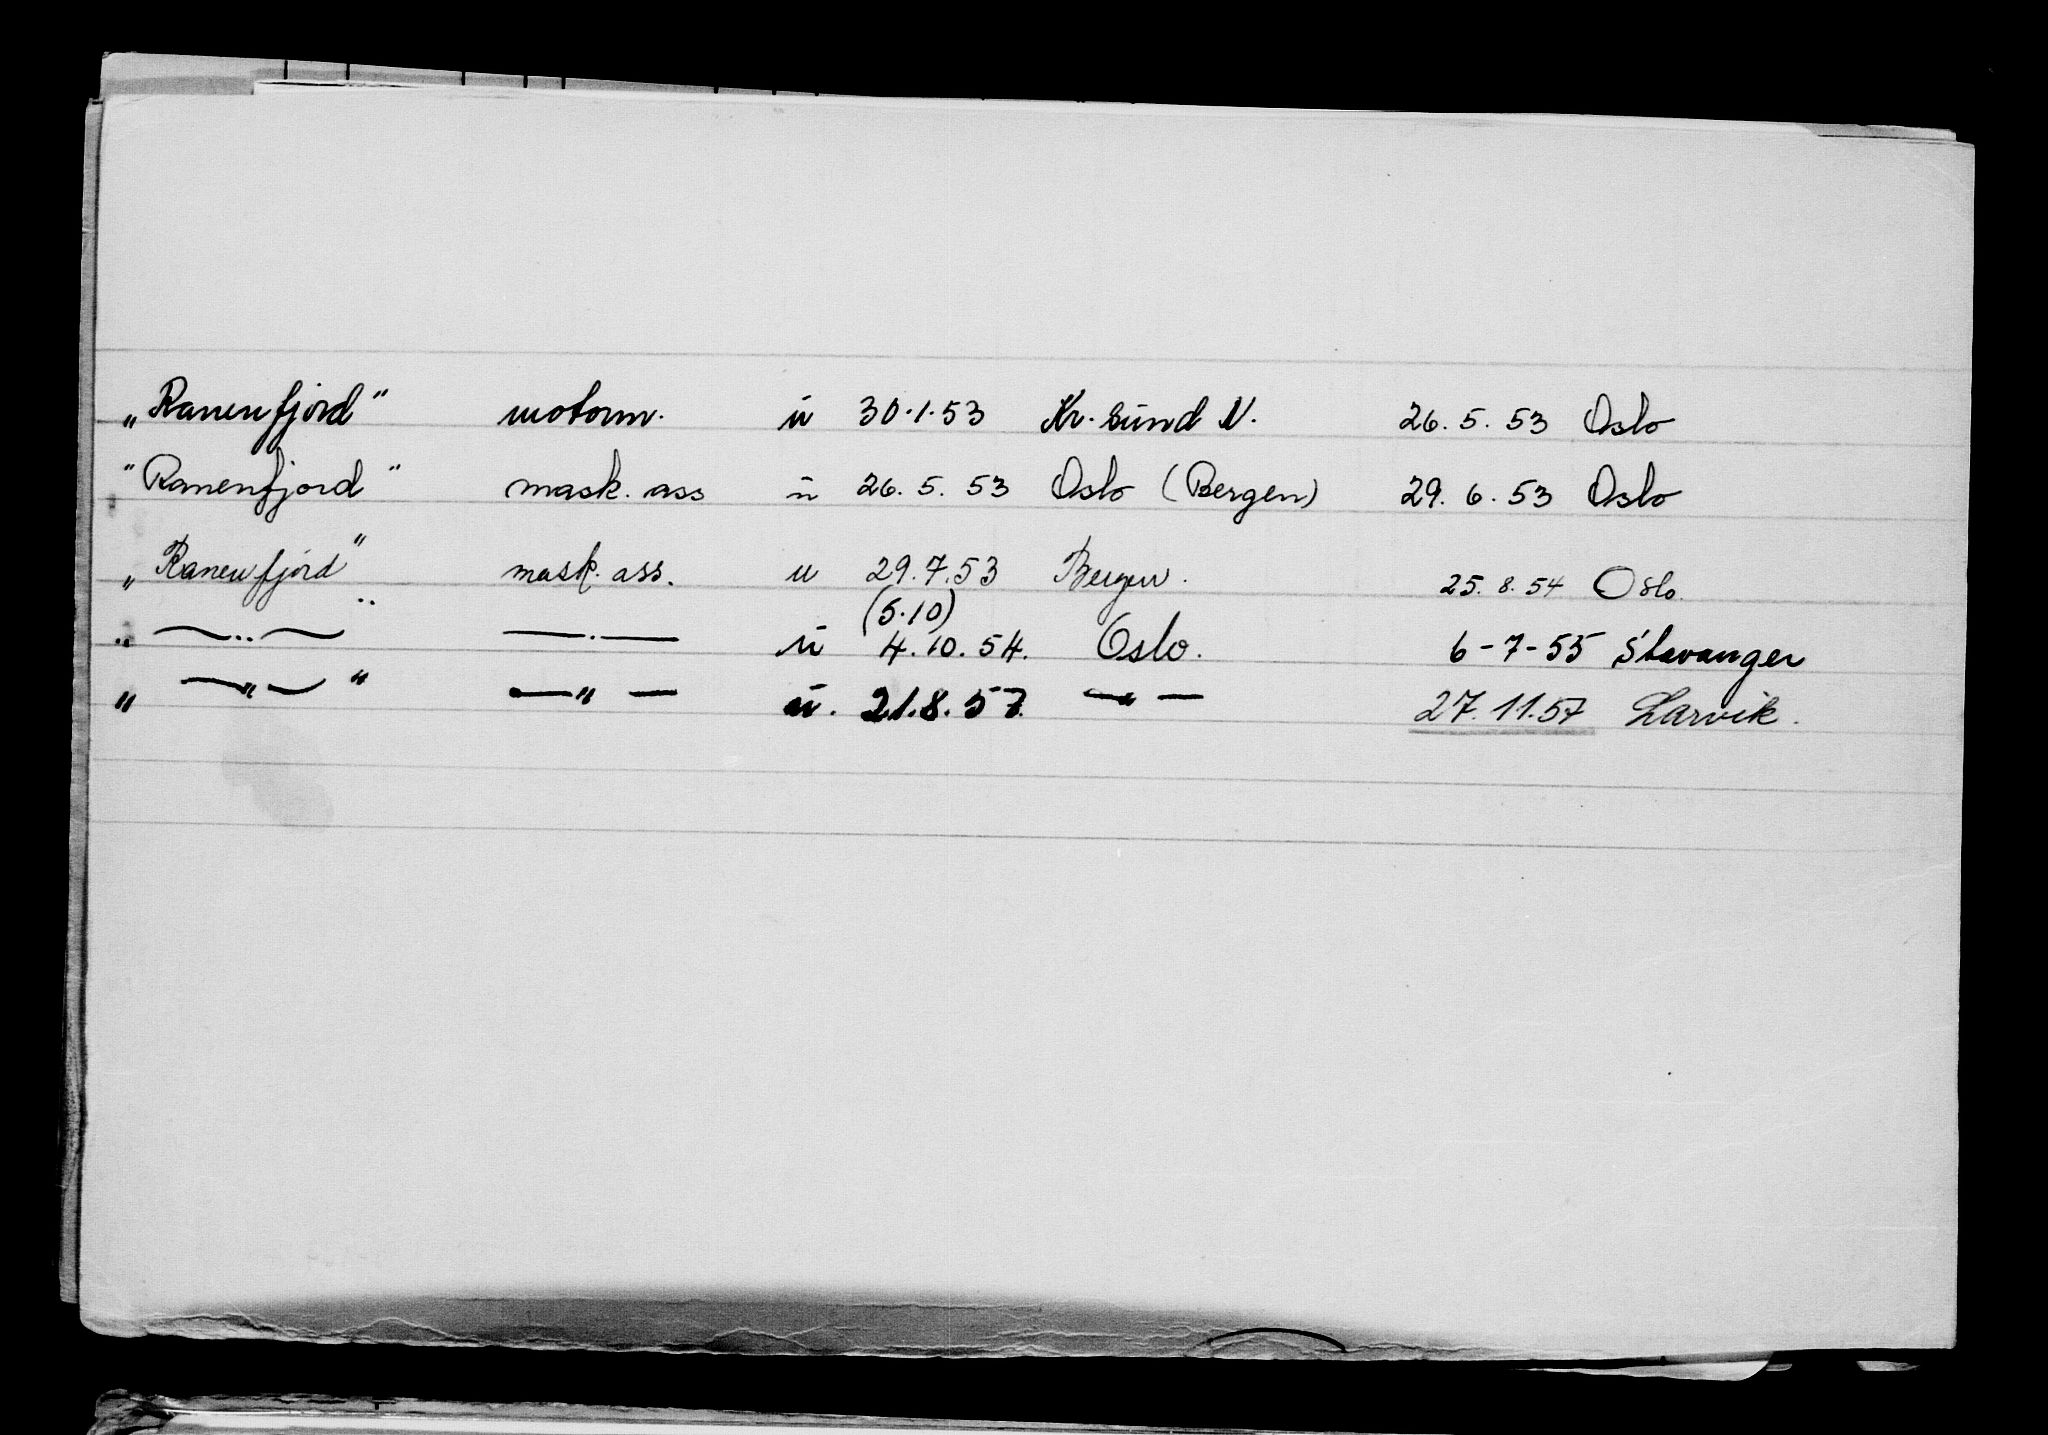 „Ranenfjord" motorm. u 30.1.53 Kr. sund N. 26.5.53 Oslo
"Ranenfjord" mask. ass u 26.5.53 Oslo (Bergen) 29.6.53 Oslo
„Ranenfjord" mask. ass. u 29.7.53 Bergen. 25.8.54 Oslo.
(5.10)
" —..— " —.— u 4.10.54. Oslo. 6-7-55 Stavanger
" —"— " —"— u. 21.8.57. —"— 27.11.57 Larvik.